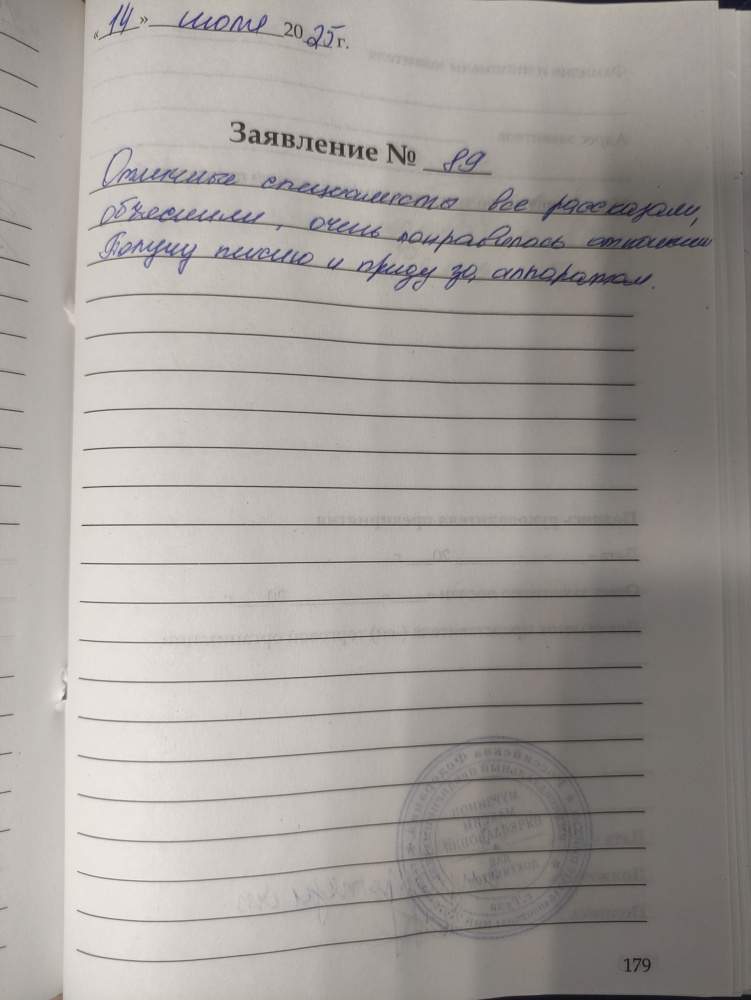 «14» июля 2025 г.
Заявление № 89
Отличные специалисты все рассказали,
объеснили, очень понравилось отношении
Получу пенсию и приду за аппаратом.
179